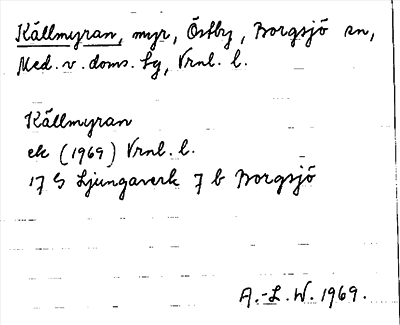 Källmyran, myr, Östby, Borgsjö sn,
Med. v. doms. tg, Vrnl. l.
Källmyran
ek (1969) Vrnl. l.
17 G Ljungaverk 7 b Borgsjö
A.-L. W. 1969.